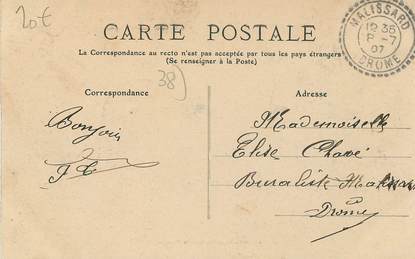 20€
CARTE POSTALE
La Correspondance au recto n'est pas acceptée par tous les pays étrangers
(Se renseigner à la Poste)
MALISSARD
12 35
07
DROME
38
Correspondance
Adresse
Bonjour
Mademoiselle
Elise
Buraliste Malissard
Drome